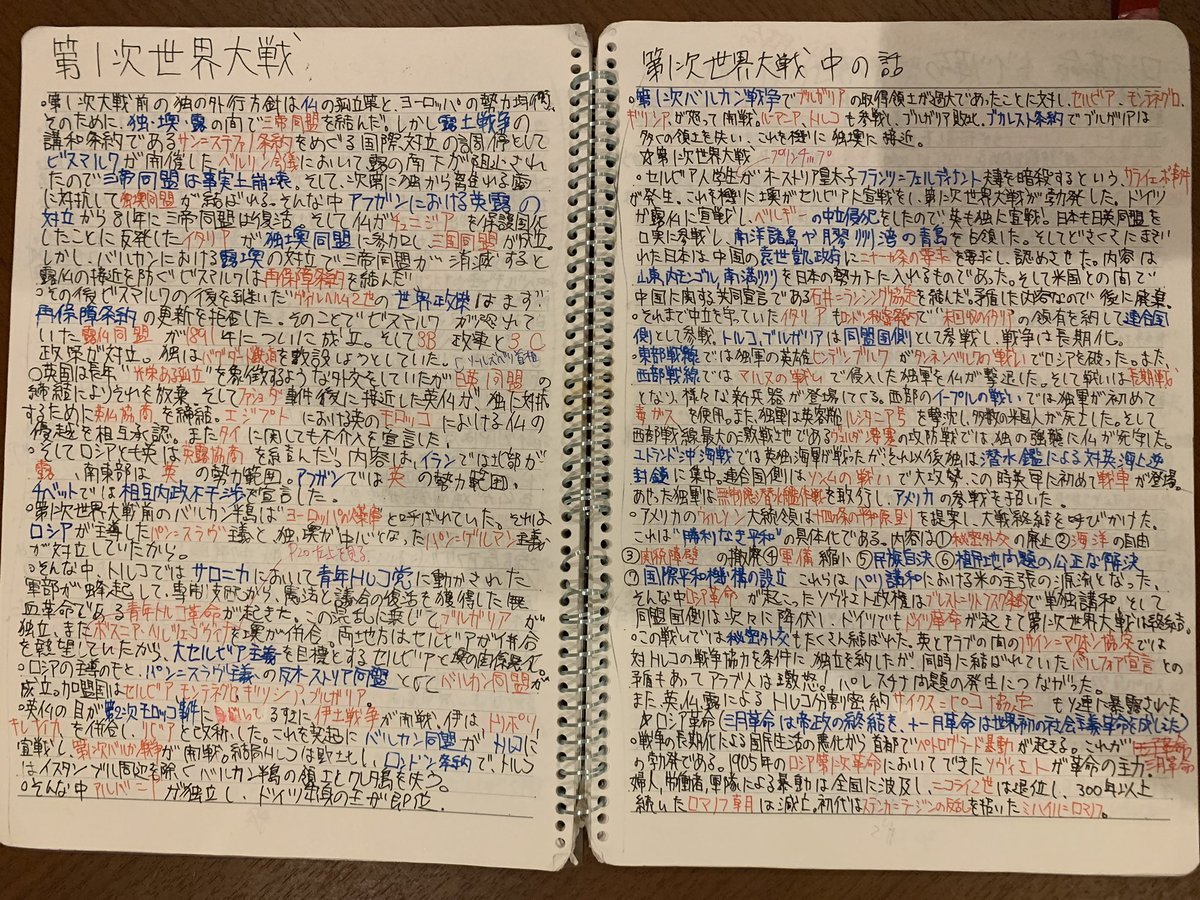 第1次世界大戦
・第1次大戦前の独の外行方針は仏の孤立策と、ヨーロッパの勢力均衡。
そのために、独・墺・露の間で三帝同盟を結んだ。しかし露土戦争の
講和条約であるサン=ステファノ条約をめぐる国際対立の調停として
ビスマルクが開催したベルリン会議において露の南下が阻止され
たので三帝同盟は事実上崩壊。そして、次第に独から離れる露
に対抗して独墺同盟が結ばれる。そんな中アフガンにおける英露の
対立から81年に三帝同盟は復活。そして仏がチュニジアを保護国化
したことに反発したイタリアが独墺同盟に参加し、三国同盟が成立。
しかし、バルカンにおける露墺の対立で三帝同盟が消滅すると
露仏の接近を防ぐビスマルクは再保障条約を結んだ
・その後ビスマルクの後を継いだヴィルヘルム2世の世界政策はまず
再保障条約の更新を拒否した。そのことでビスマルクが恐れて
いた露仏同盟が1891年についに成立。そして3B政策と3C
政策が対立。独はバグダード鉄道を敷設しようとしていた。
○英国は長年"光栄ある孤立"を象徴するような外交をしていたが日英同盟の
締結によりそれを放棄。そしてファショダ事件後に接近した英仏が、独に対抗
するために英仏協商を締結。エジプトにおける英のモロッコにおける仏の
優越を相互承認。またタイに関しても不介入を宣言した。
・そしてロシアとも英は英露協商を結んだ。内容は、イランでは北部が
露、南東部は英の勢力範囲。アフガンでは英の勢力範囲。
チベットでは相互内政不干渉で宣言した。
・第1次世界大戦前のバルカン半島は"ヨーロッパの火薬庫"と呼ばれていた。それは
ロシアが主導したパン=スラヴ主義と、独、墺が中心となったパン=ゲルマン主義
が対立していたから。 P120右上を見る
・そんな中、トルコではサロニカにおいて青年トルコ党に動かされた
軍部が蜂起して、専制支配から、憲法と議会の復活を獲得した無
血革命である青年トルコ革命が起きた。この混乱に乗じてブルガリアが
独立、またボスニア・ヘルツェゴヴィナを墺が併合。両地方はセルビアが併合
を望んでいたから、大セルビア主義を目標とするセルビアと墺の関係悪化。
・ロシアの主導のもと、パン=スラヴ主義の反オーストリア同盟としてバルカン同盟が
成立。加盟国はセルビア、モンテネグロ、ギリシア、ブルガリア。
・英仏の目が第2次モロッコ事件に向いてるすきに伊土戦争が開戦、伊はトリポリ、
キレナイカを併合し、リビアと改称した。これを契起にバルカン同盟がトルコに
宣戦し、第1次バルカン戦争が開戦。結局トルコは敗北し、ロンドン条約で、トルコ
はイスタンブル周辺を除くバルカン半島の領土とクレタ島を失う。
○そんな中アルバニアが独立し、ドイツ生身の王が即位。
第1次世界大戦 中の話
・第1次バルカン戦争でブルガリアの取得領土が過大であったことに対し、セルビア、モンテネグロ、
ギリシアが怒って開戦。ルーマニア、トルコも参戦し、ブルガリア敗北。ブカレスト条約でブルガリアは
多くの領土を失い、これを機に独墺に接近。
☆第1次世界大戦
・セルビア人学生がオーストリア皇太子フランツ=フェルディナント夫妻を暗殺するという、サライェヴォ事件
が発生。これを機に墺がセルビアに宣戦をし、第1次世界大戦が勃発した。ドイツ
が露仏に宣戦し、ベルギーの中立侵犯をしたので英も独に宣戦!日本も日英同盟を
口実に参戦し、南洋諸島や膠州湾の青島を占領した。そしてどさくさにまぎ
れた日本は、中国の袁世凱政府に二十一ヶ条の要求を要求し、認めさせた。内容は
山東、内モンゴル、南満州を日本の勢力下に入れるものであった。そして米国との間で
中国に関する共同宣言である石井=ランシング協定を結んだ。矛盾した内容なので後に廃棄。
・それまで中立を守っていたイタリアもロンドン秘密条約で"未回収のイタリア"の領有を約して連合国
側として参戦。トルコ、ブルガリアは同盟国側として参戦し、戦争は長期化。
・東部戦線では独軍の英雄ヒンデンブルクがタンネンベルクの戦いでロシアを破った。また、
西部戦線ではマルヌの戦いで侵入した独軍を仏が撃退した。そして戦いは長期戦
となり、様々な新兵器が登場してくる。西部のイープルの戦いでは独軍が初めて
毒ガスを使用。また独軍は英客船ルシタニア号を撃沈し、多数の米国人が死亡した。そして
西部戦線最大の激戦地であるヴェルダン要塞の攻防戦では、独の強襲に仏が死守した。
ユトランド沖海戦では英独海軍が戦ったが、それ以後独は、潜水鑑による対英海上
封鎖に集中。連合国側はソンムの戦いで大攻勢。この時英軍は初めて戦車が登場。
あせった独軍は無制限潜水艦作戦を敢行し、アメリカの参戦を招いた。
・アメリカのウィルソン大統領は十四条の平和原則を提案し、大戦終結を呼びかけた。
これは"勝利なき平和"の具体化である。内容は①秘密外交の廃止②海洋の自由
③関税障壁の撤廃④軍備縮小⑤民族自決⑥植民地問題の公正な解決
⑦国際平和機構の設立 これらはパリ講和における米の主張の源流となった。
そんな中ロシア革命が起こったソヴィエト政権はブレスト=リトフスク条約で単独講和、そして
同盟国側は次々に降伏し、ドイツでもドイツ革命が起きて第1次世界大戦は終結。
・この戦いでは秘密外交もたくさん結ばれた。英とアラブの間のフサイン=マクマホン協定では
対トルコの戦争協力を条件に独立を約したが、同時に結ばれていたバルフォア宣言との
矛盾もあってアラブ人は激怒!パレスチナ問題の発生につながった。
また、英仏露によるトルコ分割密約サイクス=ピコ協定もソ連に暴露された
☆ロシア革命(三月革命は帝政の終結を、十一月革命は世界初の社会主義革命を成した)
・戦争の長期化による国民生活の悪化から首都でペトログラード暴動が起きる。これが三月革命
の勃発である。1905年のロシア第1次革命においてできたソヴィエトが革命の主力。
婦人、労働者、軍隊による暴動は全国に波及し、ニコライ2世は退位し、300年以上
続いたロマノフ朝は滅亡。初代はステンカ=ラージンの反乱を招いたミハイル=ロマノフ。